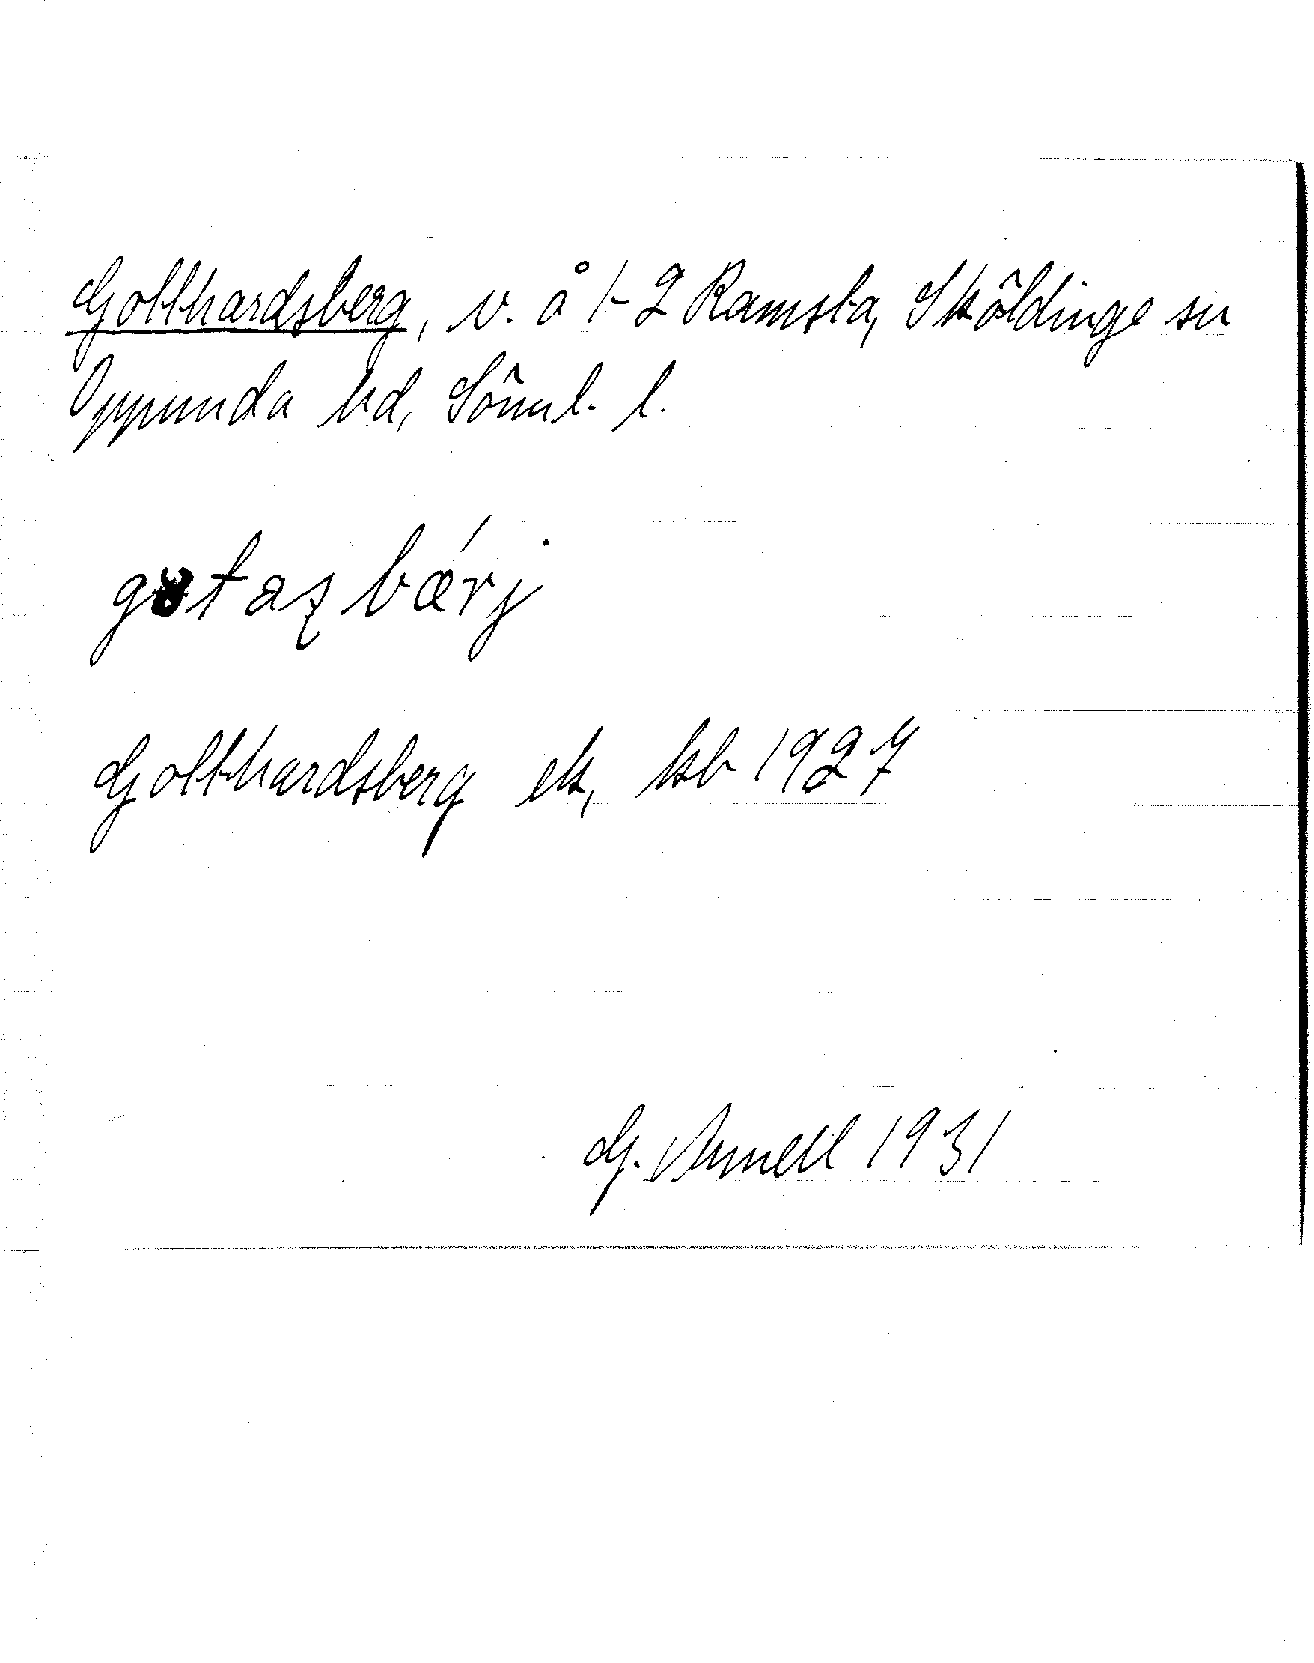 Gotthardsberg, v. å 1-2 Ramsta, Sköldinge sn
Oppunda hd, Söml. l.
gotaʂbǽrj
Gotthardsberg ek, kb 1927
G. Arnell 1931